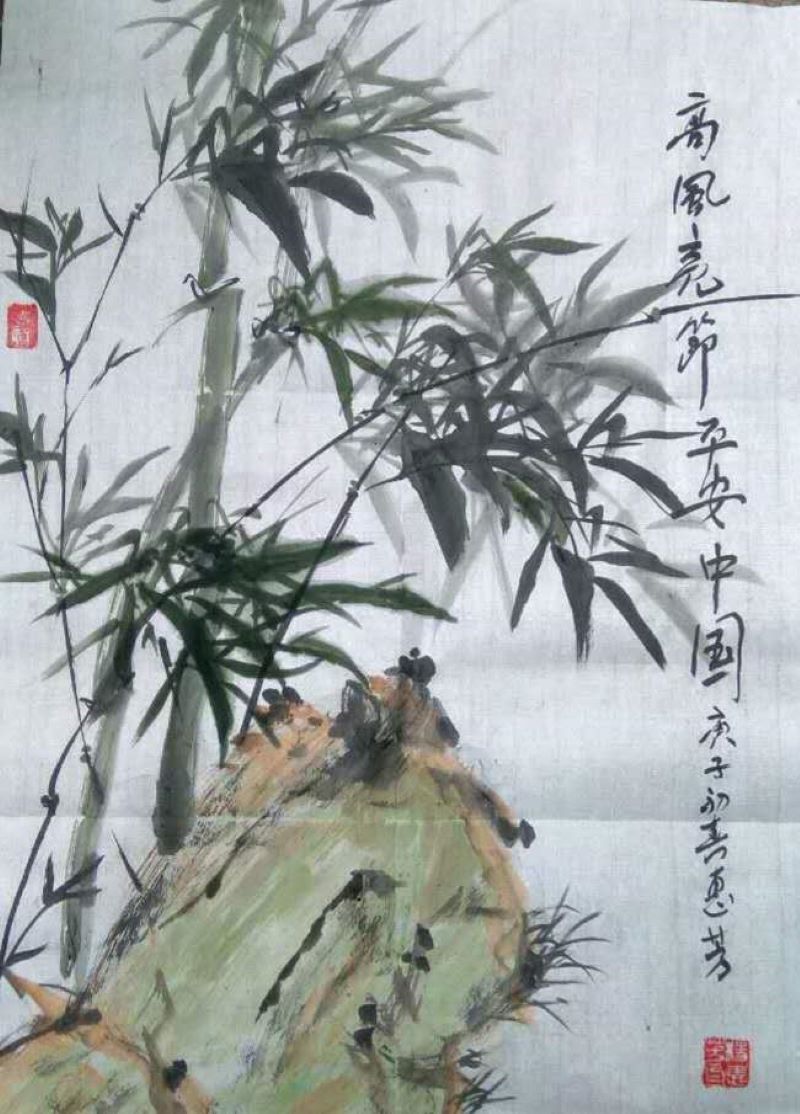 高風亮節平安中国庚子初春惠芳